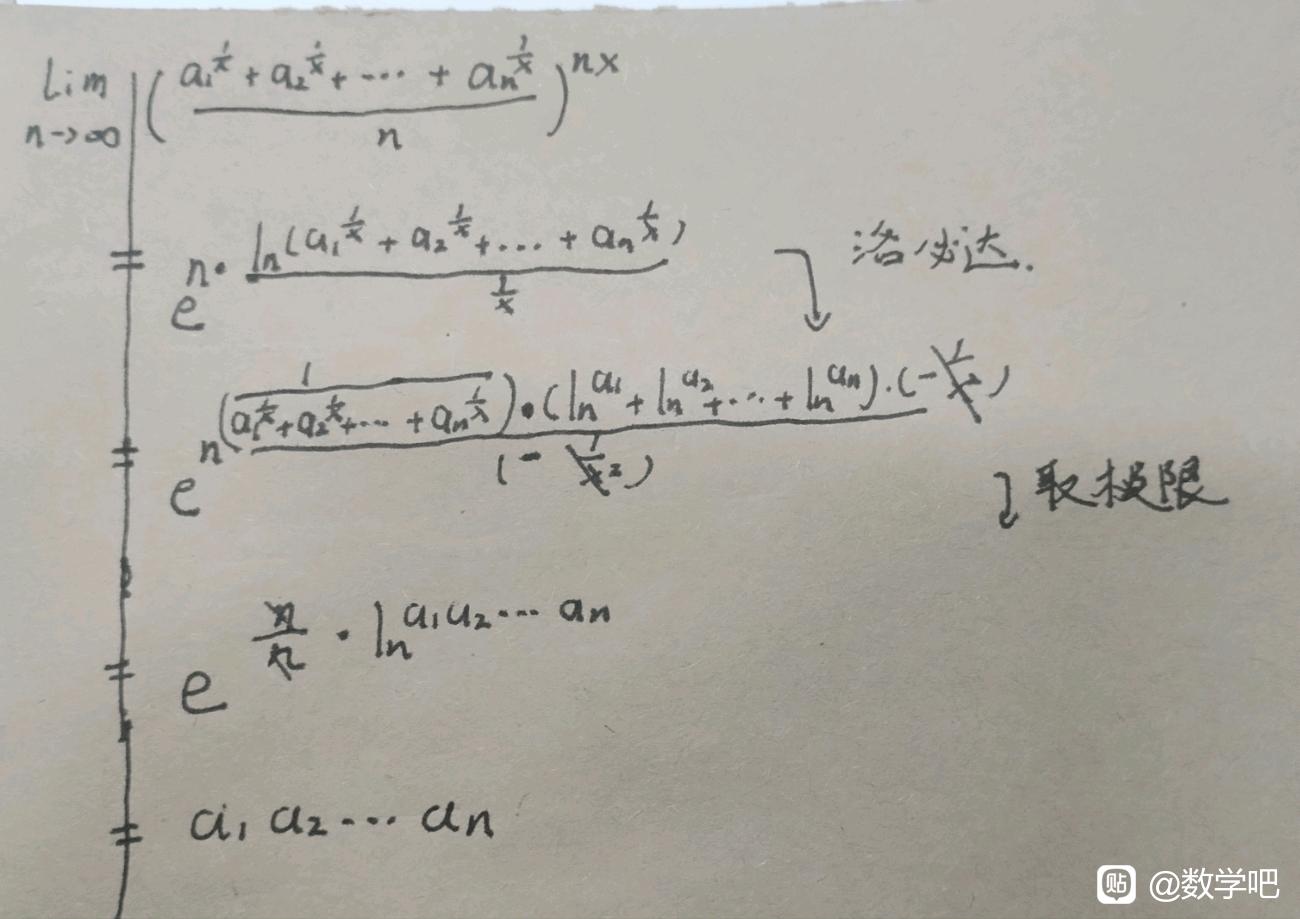 Lim n→∞ ( (a₁^(1/x) + a₂^(1/x) + ··· + aₙ^(1/x)) / n )^(nx)
= e^( n · ln(a₁^(1/x) + a₂^(1/x) + ... + aₙ^(1/x)) / (1/x) ) 洛必达.
= e^( n (1/(a₁^(1/x) + a₂^(1/x) + ··· + aₙ^(1/x))) · (ln a₁ + ln a₂ + ··· + ln aₙ) · (-1/x²) / (-1/x²) )
取极限
= e^( n/n · ln a₁a₂ ··· aₙ )
= a₁ a₂ ··· aₙ
贴 @数学吧